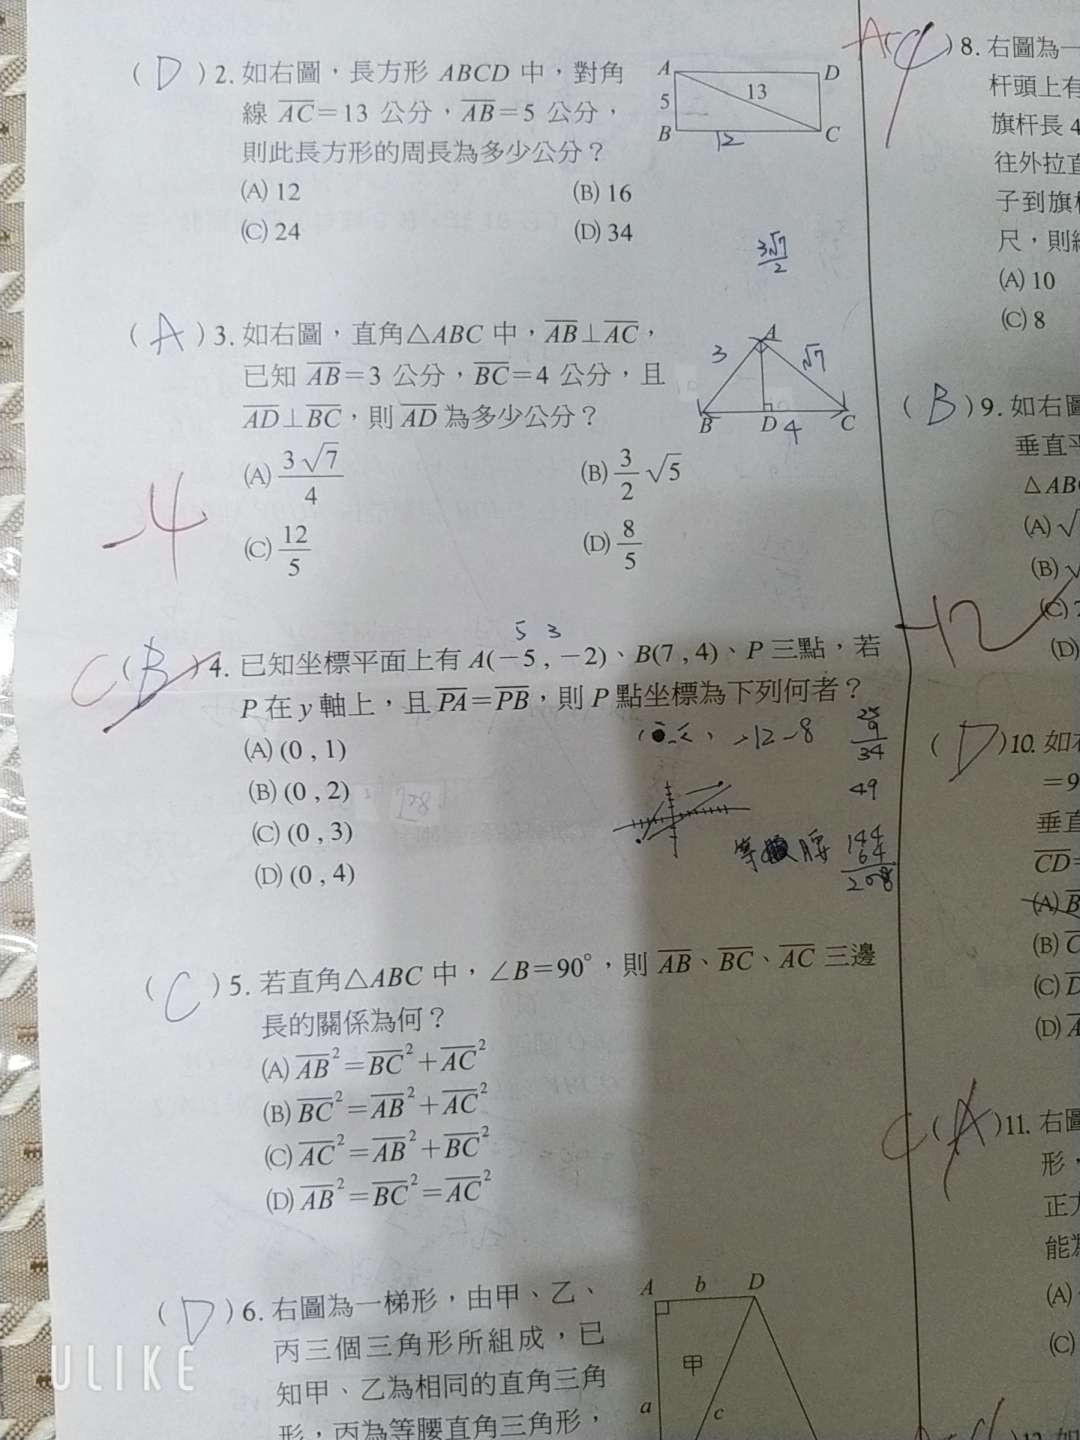 (D)2. 如右圖，長方形 ABCD 中，對角
線 AC=13 公分，AB=5 公分，
則此長方形的周長為多少公分？
(A) 12
(B) 16
(C) 24
(D) 34
A
D
13
5
B
12
C
3√7/2
(A)3. 如右圖，直角△ABC 中，AB⊥AC，
已知 AB=3 公分，BC=4 公分，且
AD⊥BC，則 AD 為多少公分？
(A) 3√7/4
(B) 3/2 √5
(C) 12/5
(D) 8/5
A
3
√7
B
D
4
C
-4
5 3
C(B)4. 已知坐標平面上有 A(−5 , −2)、B(7 , 4)、P 三點，若
P 在 y 軸上，且 PA=PB，則 P 點坐標為下列何者？
(A) (0 , 1)
(B) (0 , 2)
(C) (0 , 3)
(D) (0 , 4)
-12-8
25
9
34
49
等腰
144
64
208
(C)5. 若直角△ABC 中，∠B=90°，則 AB、BC、AC 三邊
長的關係為何？
(A) AB²=BC²+AC²
(B) BC²=AB²+AC²
(C) AC²=AB²+BC²
(D) AB²=BC²=AC²
(D)6. 右圖為一梯形，由甲、乙、
丙三個三角形所組成，已
知甲、乙為相同的直角三角
形，丙為等腰直角三角形，
A
b
D
甲
a
c
)8. 右圖為一
杆頭上有
旗杆長 4
往外拉直
子到旗杆
尺，則
(A) 10
(C) 8
(B)9. 如右圖
垂直平
△AB
(A) √
(B) √
(C)
(D)
-12
(D)10. 如
=9
垂直
CD=
(A) B
(B)
(C)
(D)
C(A)11. 右圖
形，
正方
能為
(A)
(C)
ULIKE